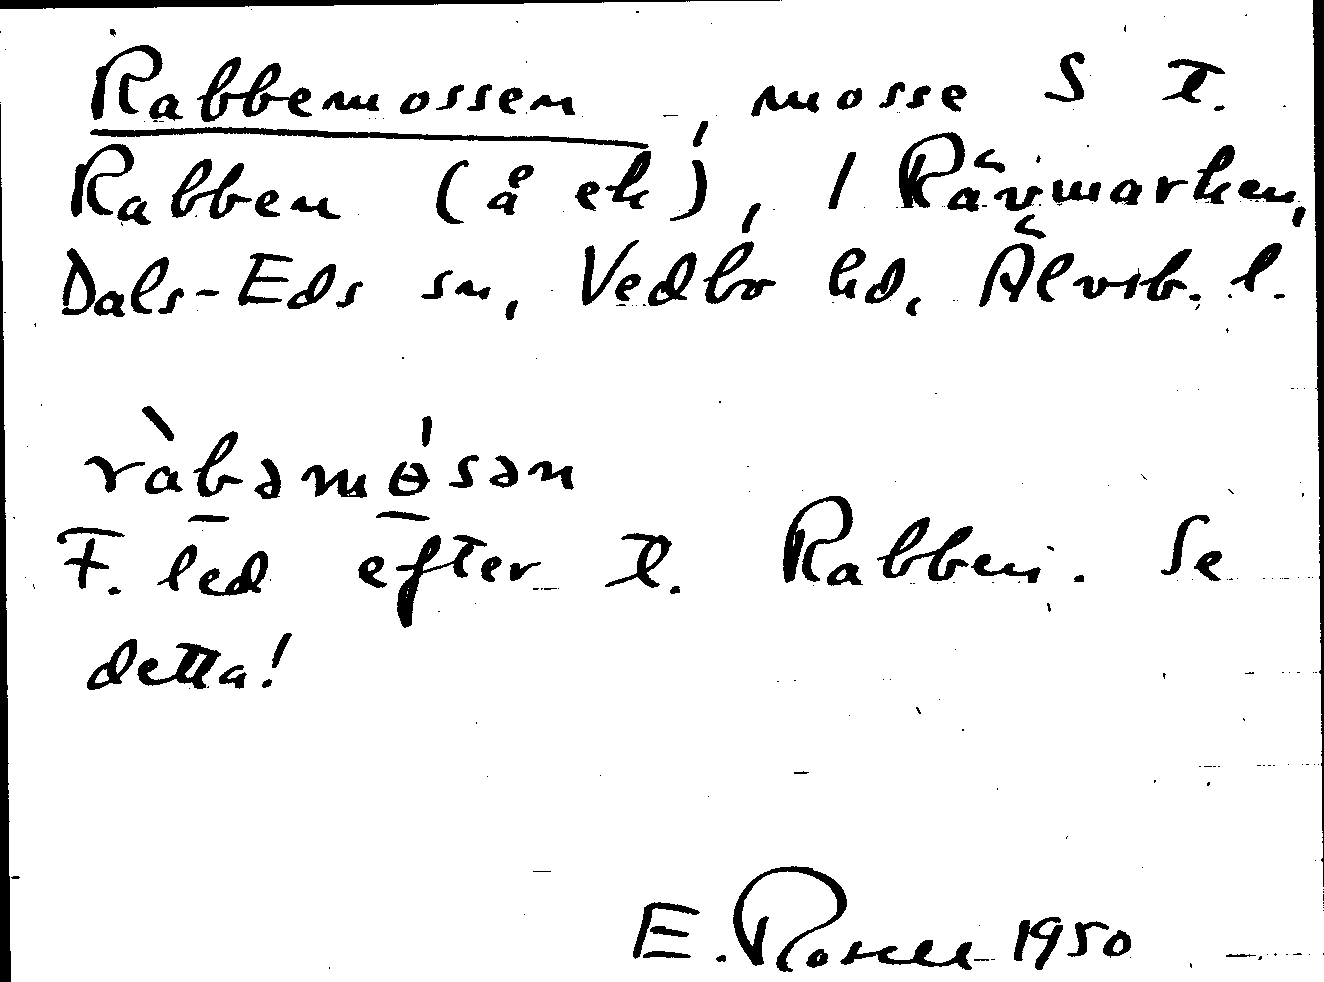 Rabbemossen, mosse S t.
Rabben (å ek), 1 Rävmarken,
Dals-Eds sn, Vedbo hd, Älvsb. l.
ràbəmɵ́sən
F. led efter t. Rabben. Se
detta!
E. Rosell 1950